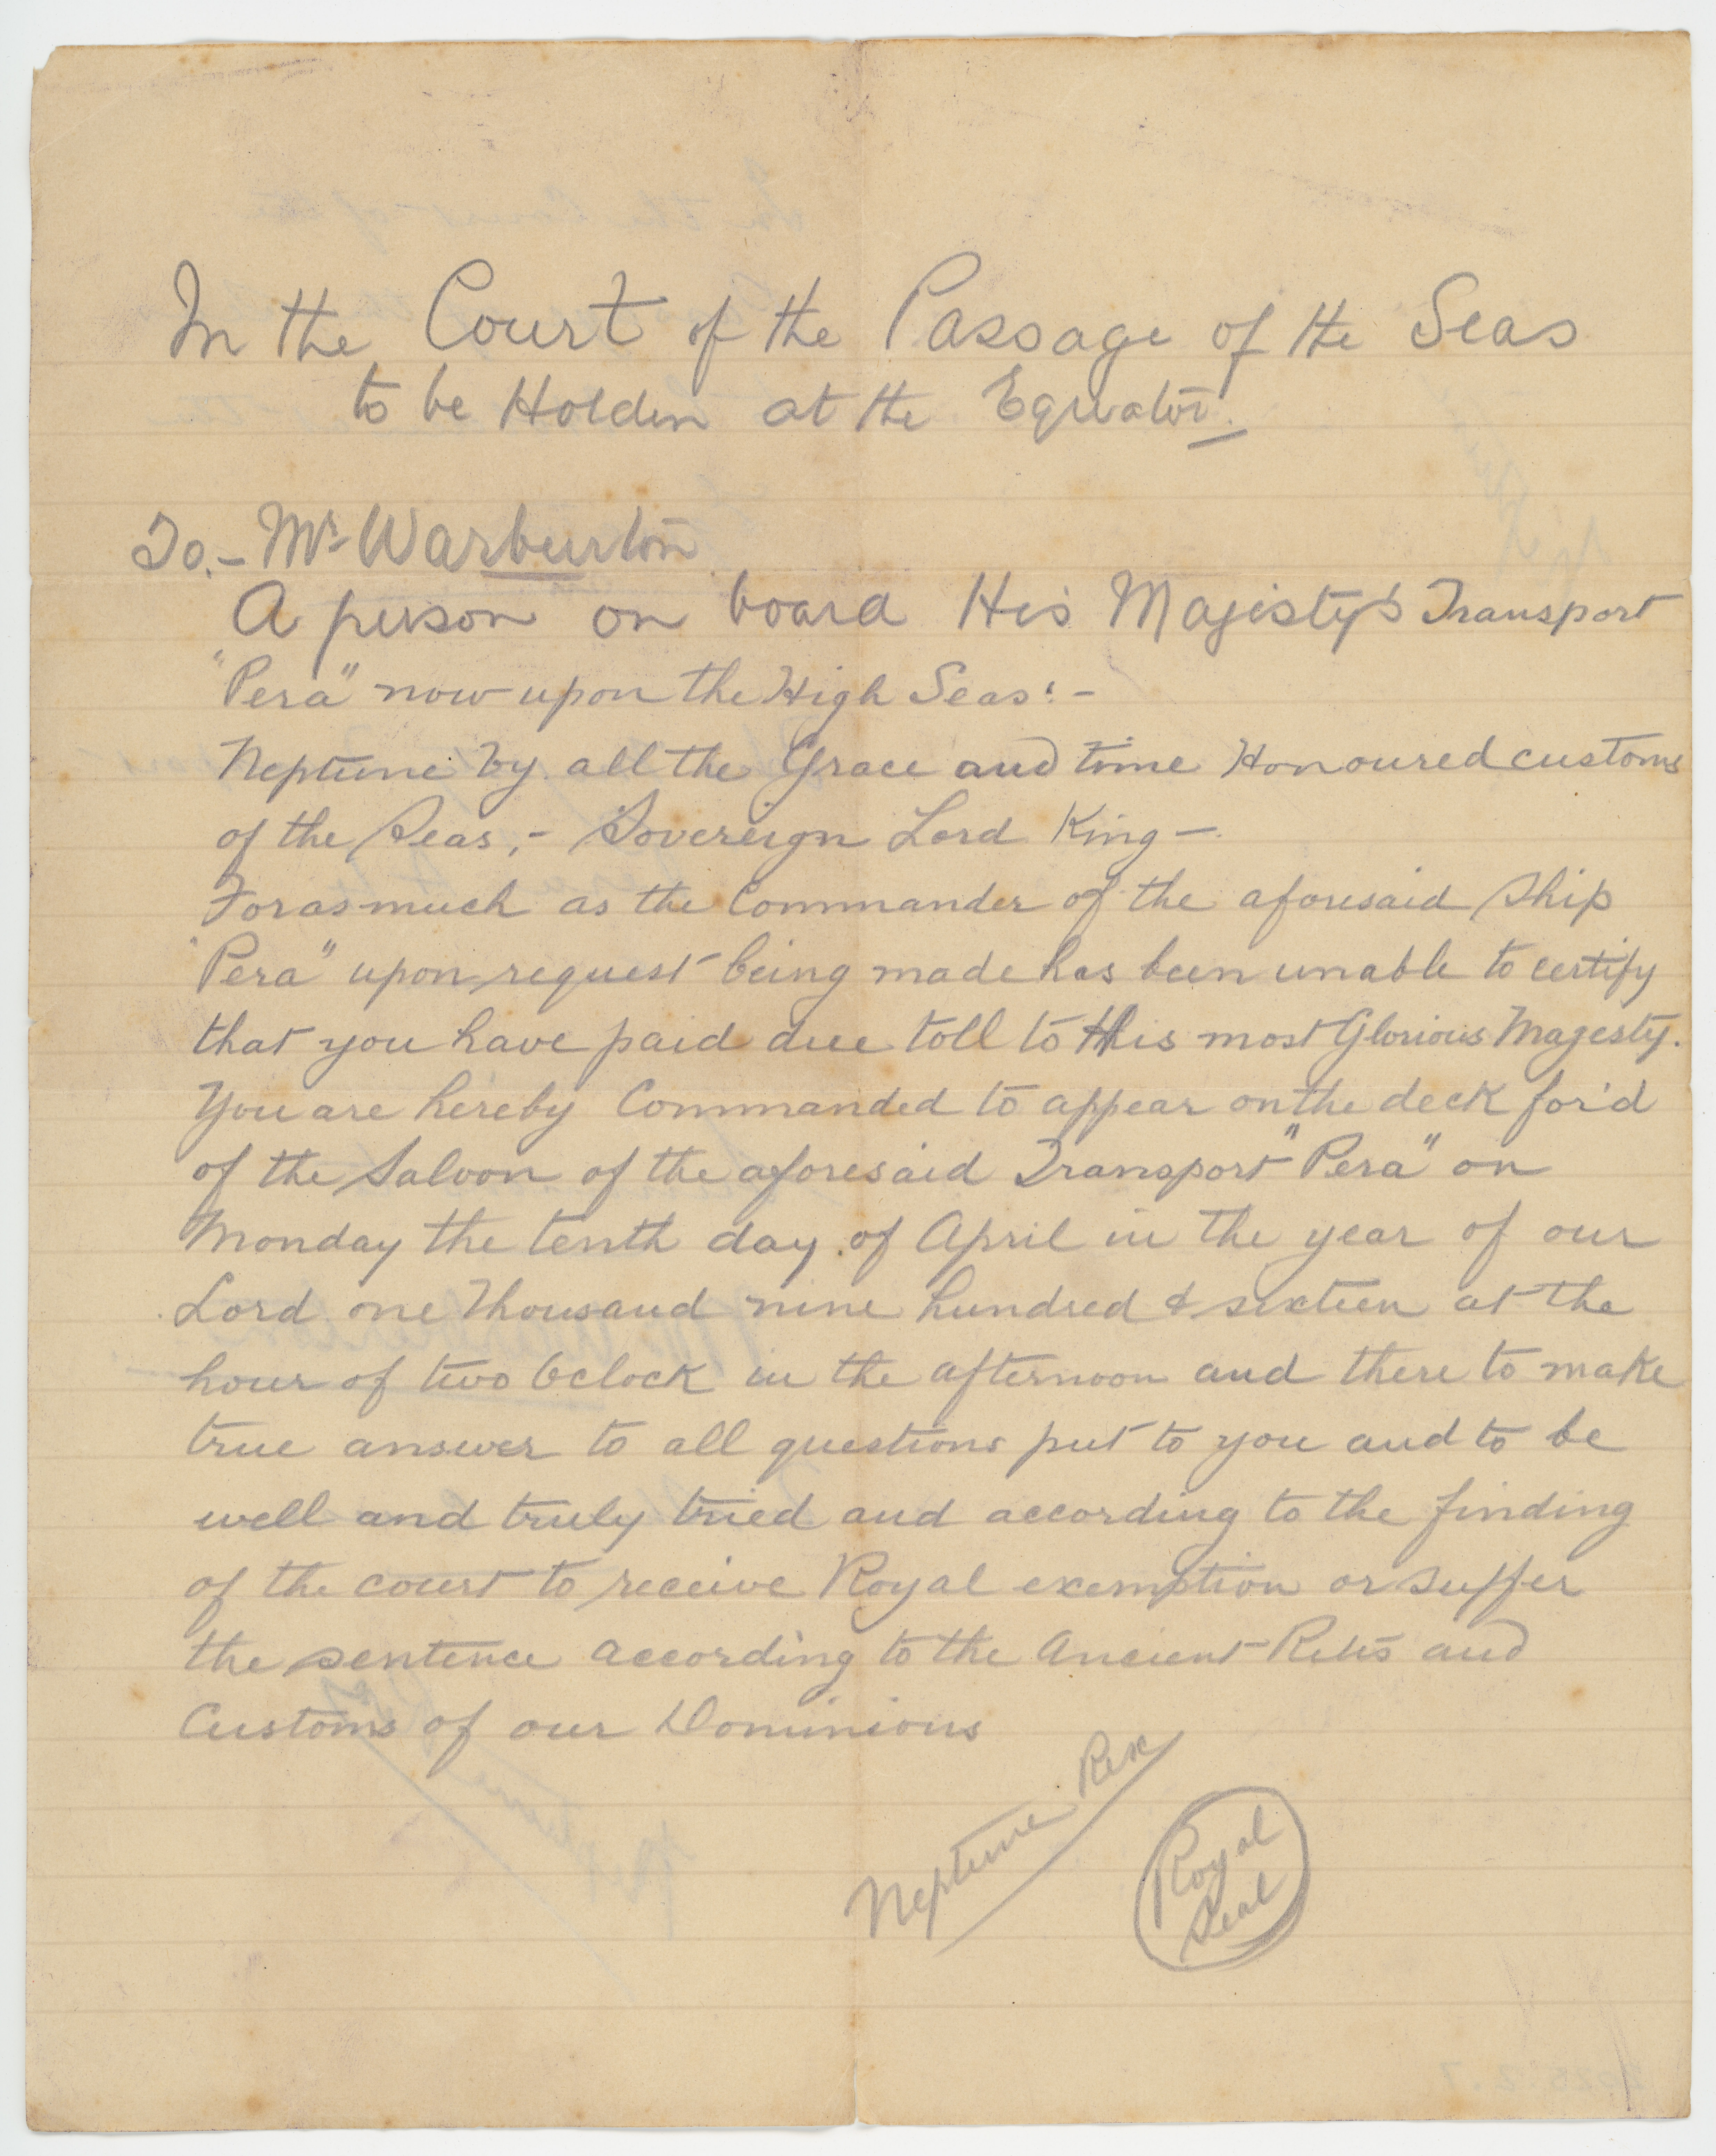 In the Court of the Passage of the Seas
to be Holden at the Equator.
To.- Mr Warburton
A person on board His Majesty's Transport
"Pera" now upon the High Seas:-
Neptune by all the Grace and time Honoured customs
of the Seas,- Sovereign Lord King -
Forasmuch as the Commander of the aforesaid Ship
"Pera" upon request being made has been unable to certify
that you have paid due toll to His most Glorious Magesty.
You are hereby Commanded to appear on the deck for'd
of the Saloon of the aforesaid Transport "Pera" on
Monday the tenth day of April in the year of our
Lord one Thousand nine hundred & sixteen at the
hour of two Oclock in the afternoon and there to make
true answer to all questions put to you and to be
well and truly tried and according to the finding
of the court to receive Royal exemption or suffer
the sentence according to the Ancient Rites and
Customs of our Dominions
Neptune Rex
Royal
Seal